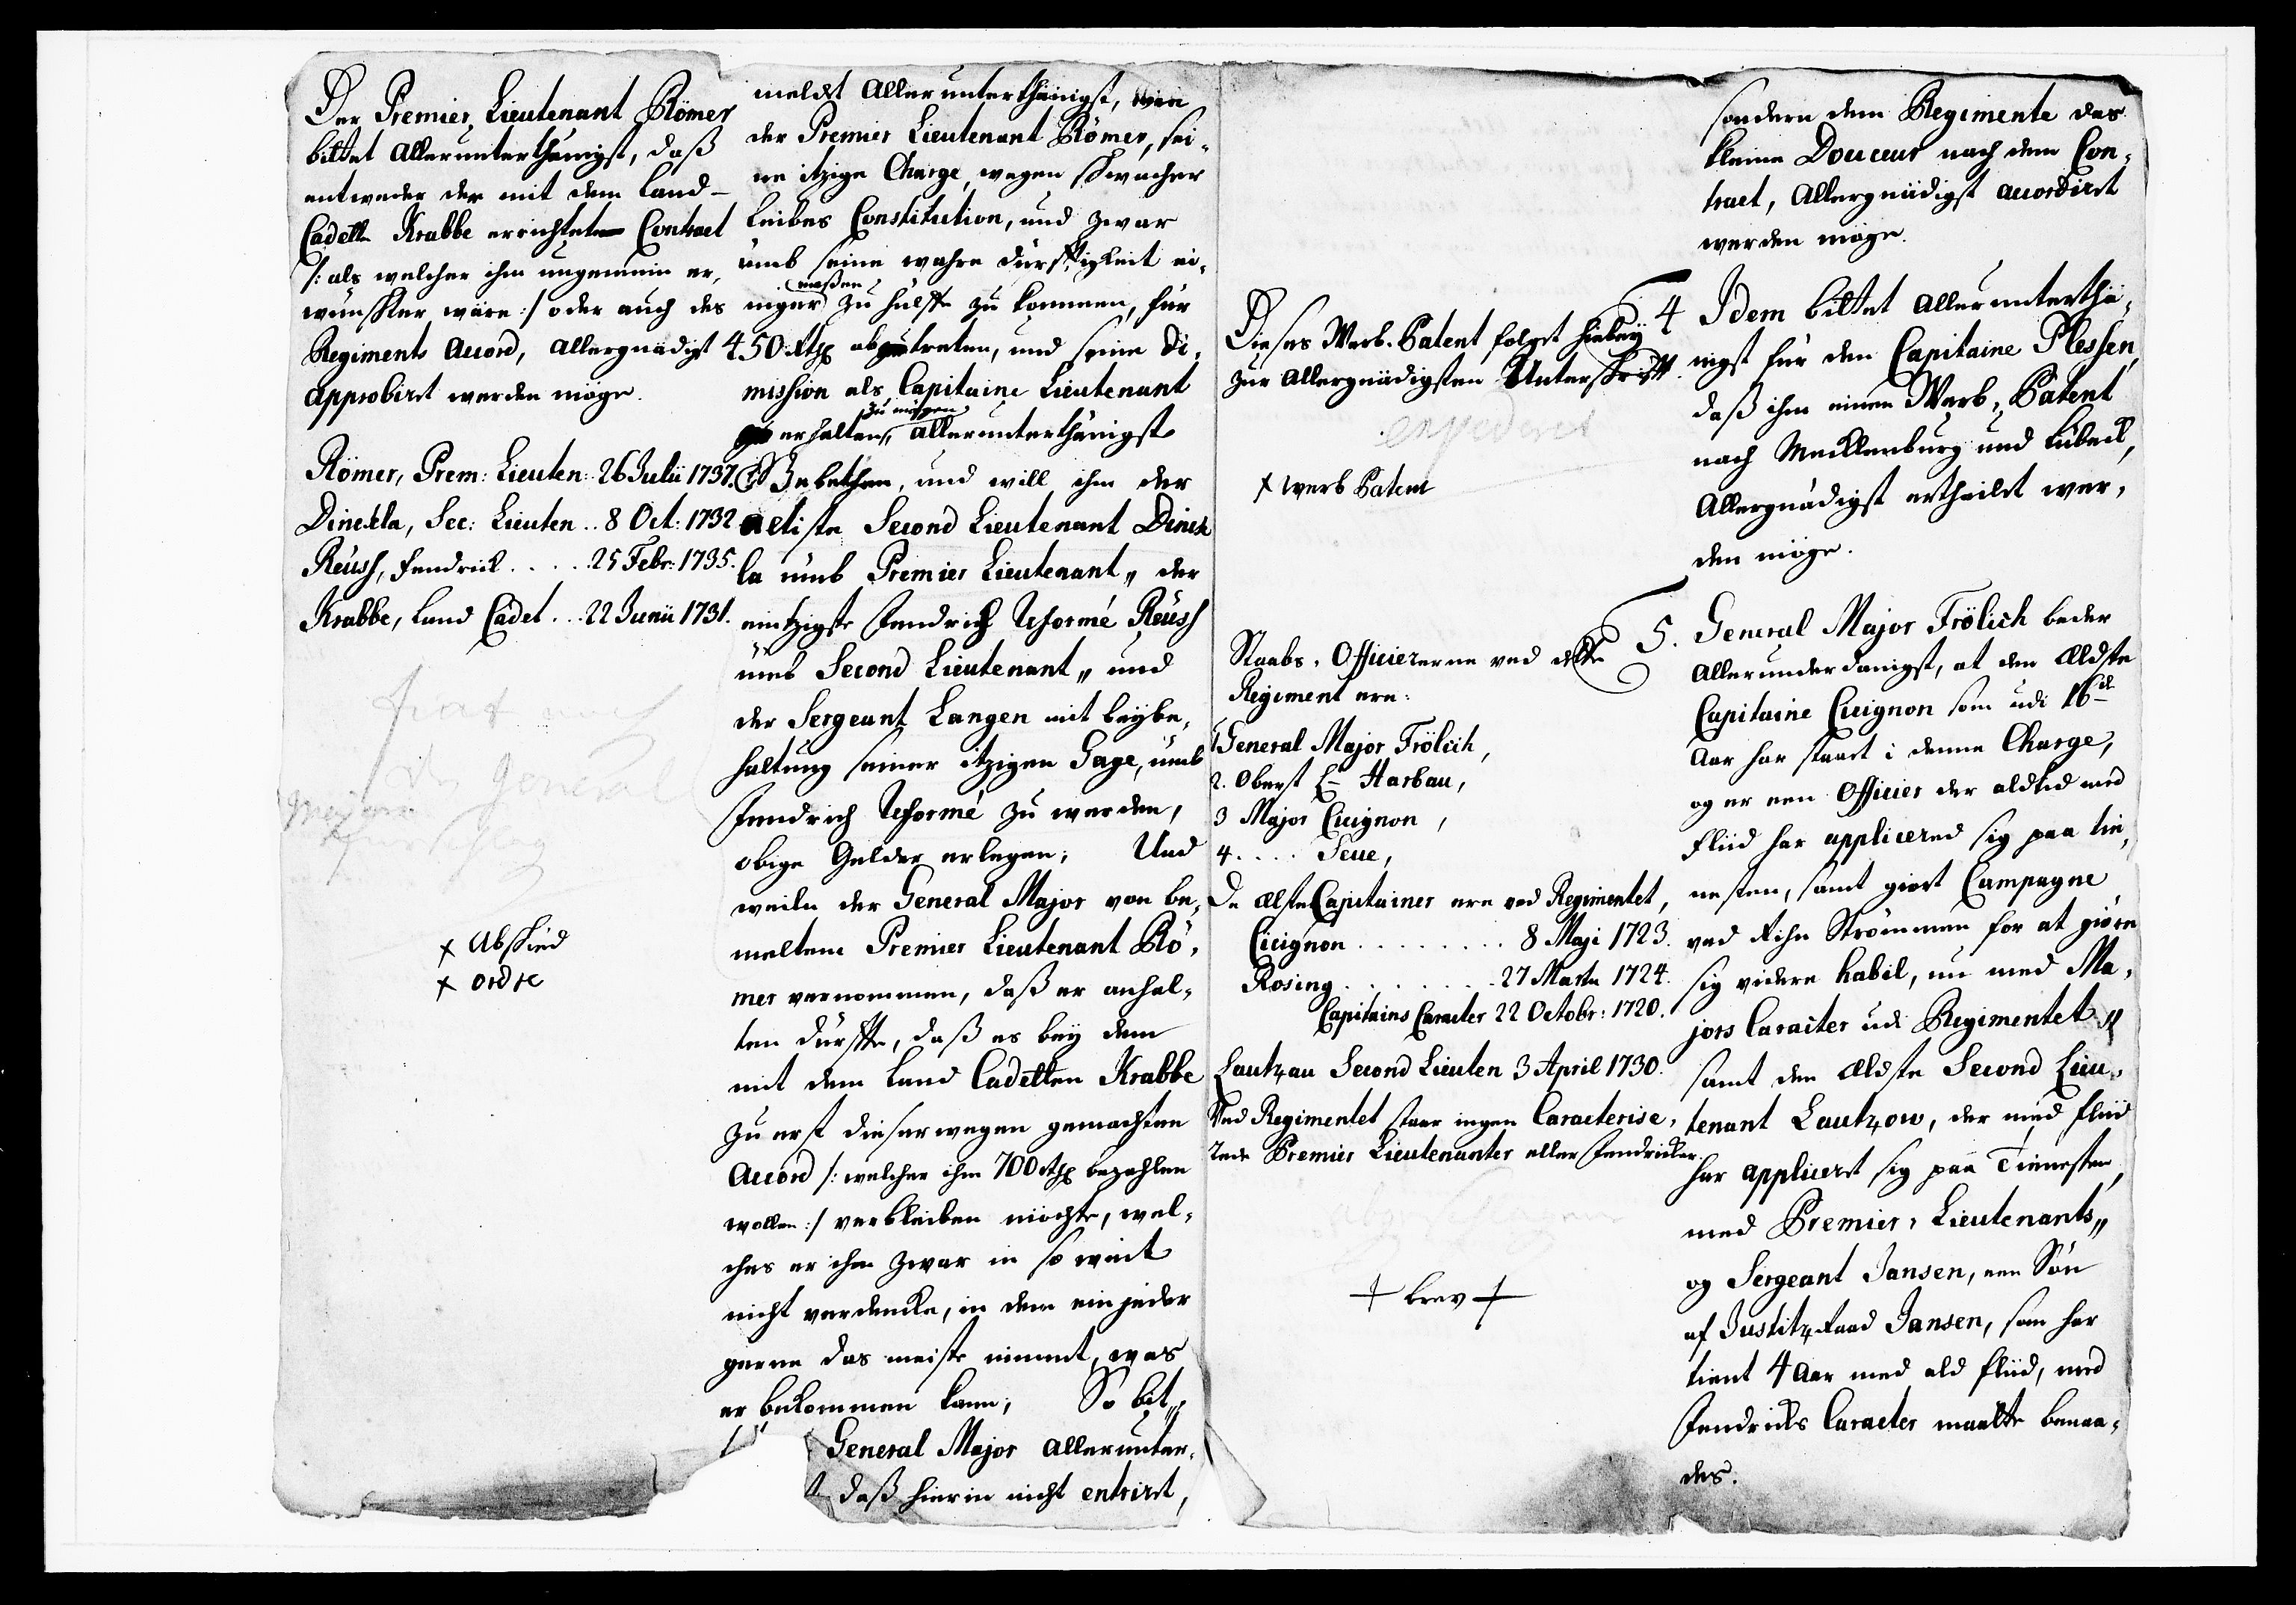 Der Premier Lieutenant Römer
bittet allerunterthänigst, daß
entweder der mit dem Land-
Cadett Krabbe errichtete Contract
/: als welcher ihm ungemein er,
wünschter wäre :/ oder auch des
Regiments Accord, allergnädigst
approbirt werden möge.
Römer, Prem: Lieuten: 26 Julii 1737.
Dinckla, Sec: Lieuten .. 8 Oct: 1732
Reuss, Fendrick .... 25 Febr: 1735.
Krabbe, Land Cadet ... 22 Junii 1731.
fiat nach
des General
Majors
Vorschlag
+ Abschied
+ ordre
meldet allerunterthänigst, wie
der Premier Lieutenant Römer, sei,
ne itzige Charge, wegen schwacher
Leibes Constitution, und zwar
umb seine wahre Dürfftigkeit ei,
niger maßen zu hülffe zu kommen, für
450 Rthl abzutreten, und seine Di,
mission als Capitaine Lieutenant
erhalten zu mögen, allerunterthänigst
gebethen, und will ihm der
ältiste Second Lieutenant Dinck
la umb Premier Lieutenant, der
eintzigste Fendrich Reformé Reuss
umb Second Lieutenant, und
der Sergeant Langen mit beybe,
haltung seiner itzigen Gage, umb
Fendrich Reformé zu werden,
obige Gelder erlegen; Und
weiln der General Major von be,
meltem Premier Lieutenant Rö,
mer vernommen, daß er anhal,
ten dürffte, daß es bey dem
mit dem Land Cadetten Krabbe
zu erst dieserwegen gemachten
Accord /: welcher ihm 700 Rthl bezahlen
wollen :/ verbleiben möchte, wel,
ches er ihm zwar in so weit
nicht verdencke, in dem ein jeder
gerne das meiste nimmt, was
er bekommen kann; So bit,,
General Major allerunter,
daß hierin nicht entrirt,
Dieses Werb-Patent folget hiebey
zur allergnädigsten Unterschrifft.
expederet
+ werb Patent
Staabs-Officiererne ved dette
Regiment ere:
1 General Major Frölich,
2. Oberst L Harbau,
3 Major Cicignon,
4 .... Seue,
De ælste Capitainer ere ved Regimentet,
Cicignon ........ 8 Maji 1723.
Rosing ........ 27 Martii 1724.
Capitains Caracter 22 Octobr: 1720.
Lautzau Second Lieuten 3 April 1730.
Ved Regimentet staar ingen Caracterise,
rede Premier Lieutenanter eller Fendricker.
+ brev +
sondern dem Regimente das
kleine Douceur nach dem Con,
tract, allergnädigst accordirt
werden möge.
4 Idem bittet allerunterthä,
nigst für den Capitaine Plessen,
daß ihm einen Werb-Patent
nach Mecklenburg und Lübeck,
allergnädigst ertheilet wer,
den möge.
5. General Major Frölich beder
allerunderdanigst, at den ældste
Capitaine Cicignon som udi 16de
Aar har staaet i denne Charge,
og er een Officier der altid med
Fliid har appliceret sig paa tie,
nesten, samt giort Campagne
ved Rihn Strömmen for at giøre
sig videre habil, nu med Ma,
jors Caracter udi Regimentet,,
samt den ældste Second Lieu,
tenant Lautzow, der med fliid
har appliceret sig paa Tienesten,
med Premier-Lieutenants,,
og Sergeant Jansen, een Søn
af Justitz Raad Jansen, som har
tient 4 Aar med ald fliid, med
Fendricks Caracter maatte benaa,
des.